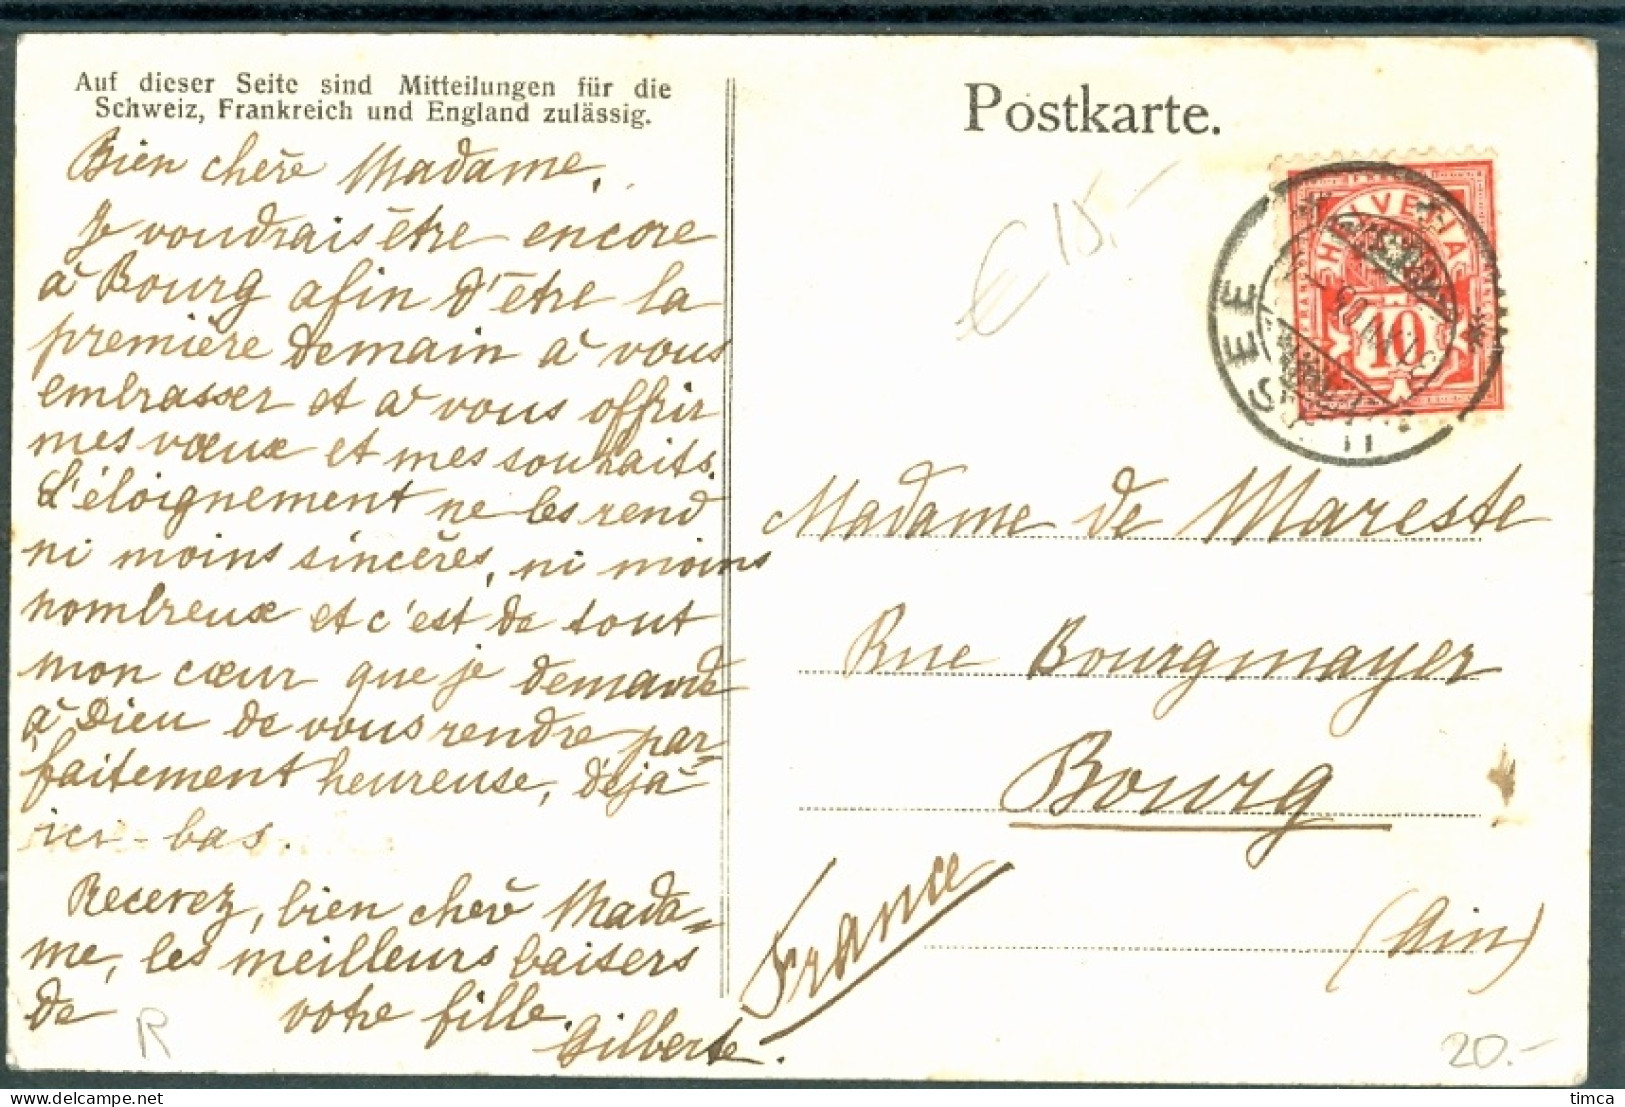 Auf dieser Seite sind Mitteilungen für die
Schweiz, Frankreich und England zulässig.
Postkarte.
Bien chère Madame,
Je voudrais être encore
à Bourg afin d'être la
première demain à vous
embrasser et à vous offrir
mes vœux et mes souhaits.
L'éloignement ne les rend
ni moins sincères, ni moins
nombreux et c'est de tout
mon cœur que je demande
à Dieu de vous rendre par=
faitement heureuse, déjà
ici-bas.
Recevez, bien chère Mada=
me, les meilleurs baisers
de votre fille.
Gilberte.
€ 15.-
HELVETIA
10
SEE
Madame de Mareste
Rue Bourgmayer
Bourg
(Ain)
France
R
20.-
timca